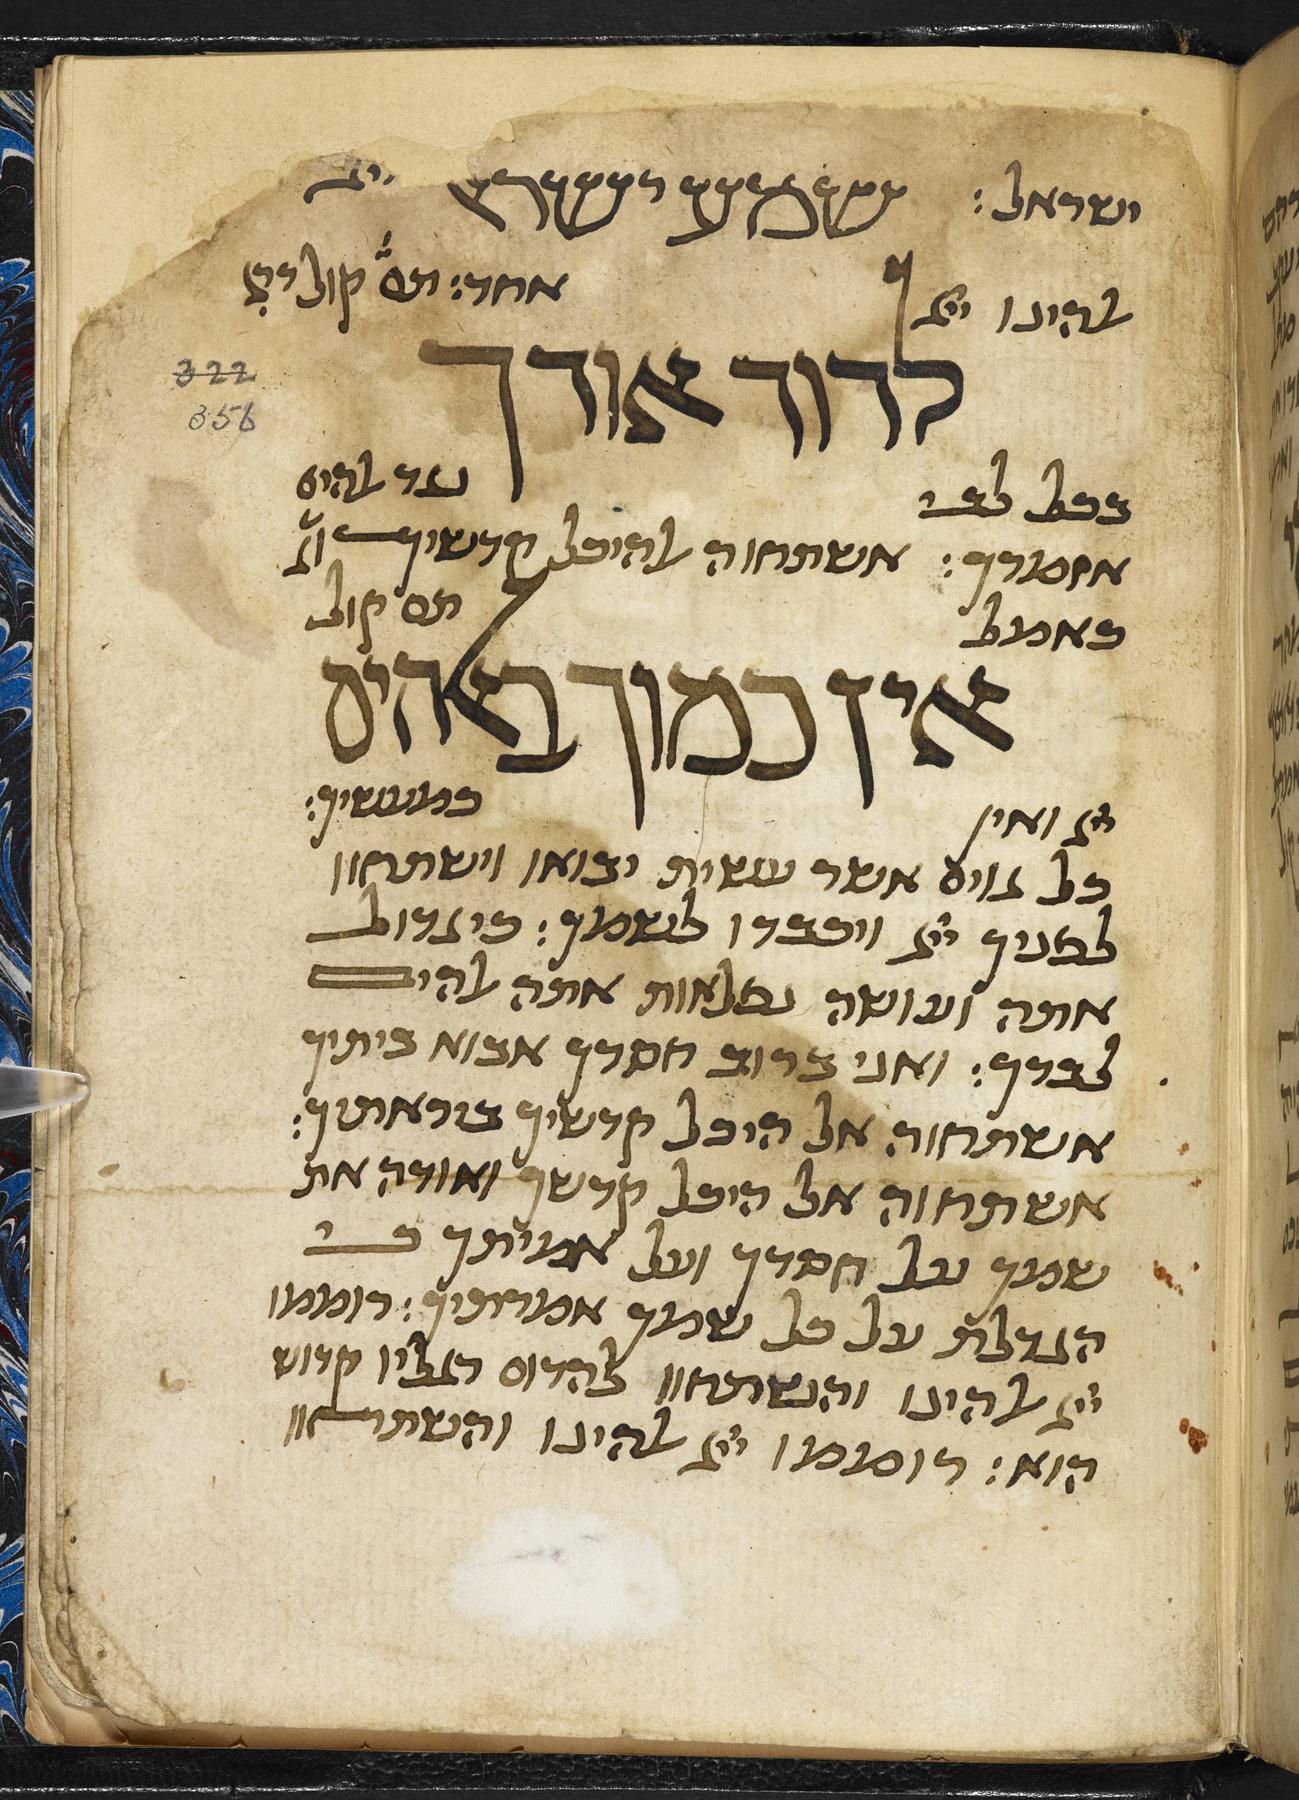 ישראל: שמע ישר ייי
להינו ייי אחד: תם קול
322
356
לדוד אודך
בכל לבי נגד להים
אזמרך: אשתחוה להיכל קדשיך
כאמל תם קול
אין כמוך באהים
ייי ואין כמעשיך:
כל גוים אשר עשית יבואו וישתחוו
לפניך ייי ויכבדו לשמך: כי גדול
אתה ועושה נפלאות אתה להים
לבדך: ואני ברוב חסדך אבוא ביתיך
אשתחוה אל היכל קדשיך ביראתיך:
אשתחוה אל היכל קדשך ואודה את
שמך על חסדך ועל אמיתך כי
הגדלת על כל שמך אמרתיך: רוממו
ייי להינו והשתחוו להדום רגליו קדוש
הוא: רוממו ייי להינו והשתחוו